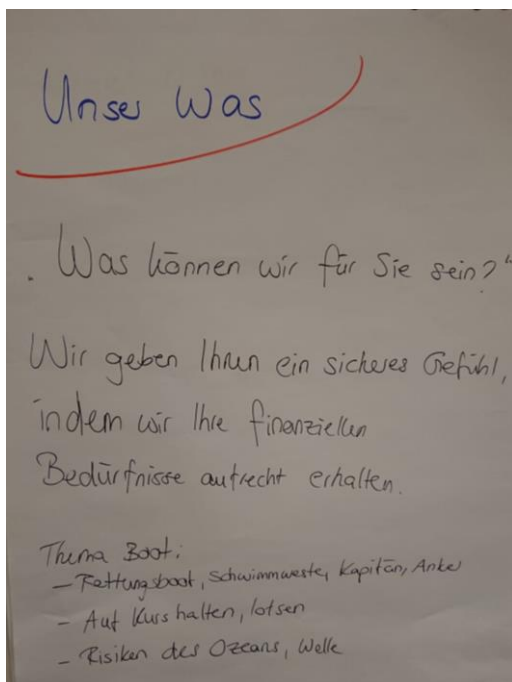 Unser Was
„Was können wir für Sie sein?“
Wir geben Ihnen ein sicheres Gefühl,
indem wir Ihre finanziellen
Bedürfnisse aufrecht erhalten.
Thema Boot:
– Rettungsboot, Schwimmweste, Kapitän, Anker
– Auf Kurs halten, lotsen
– Risiken des Ozeans, Welle